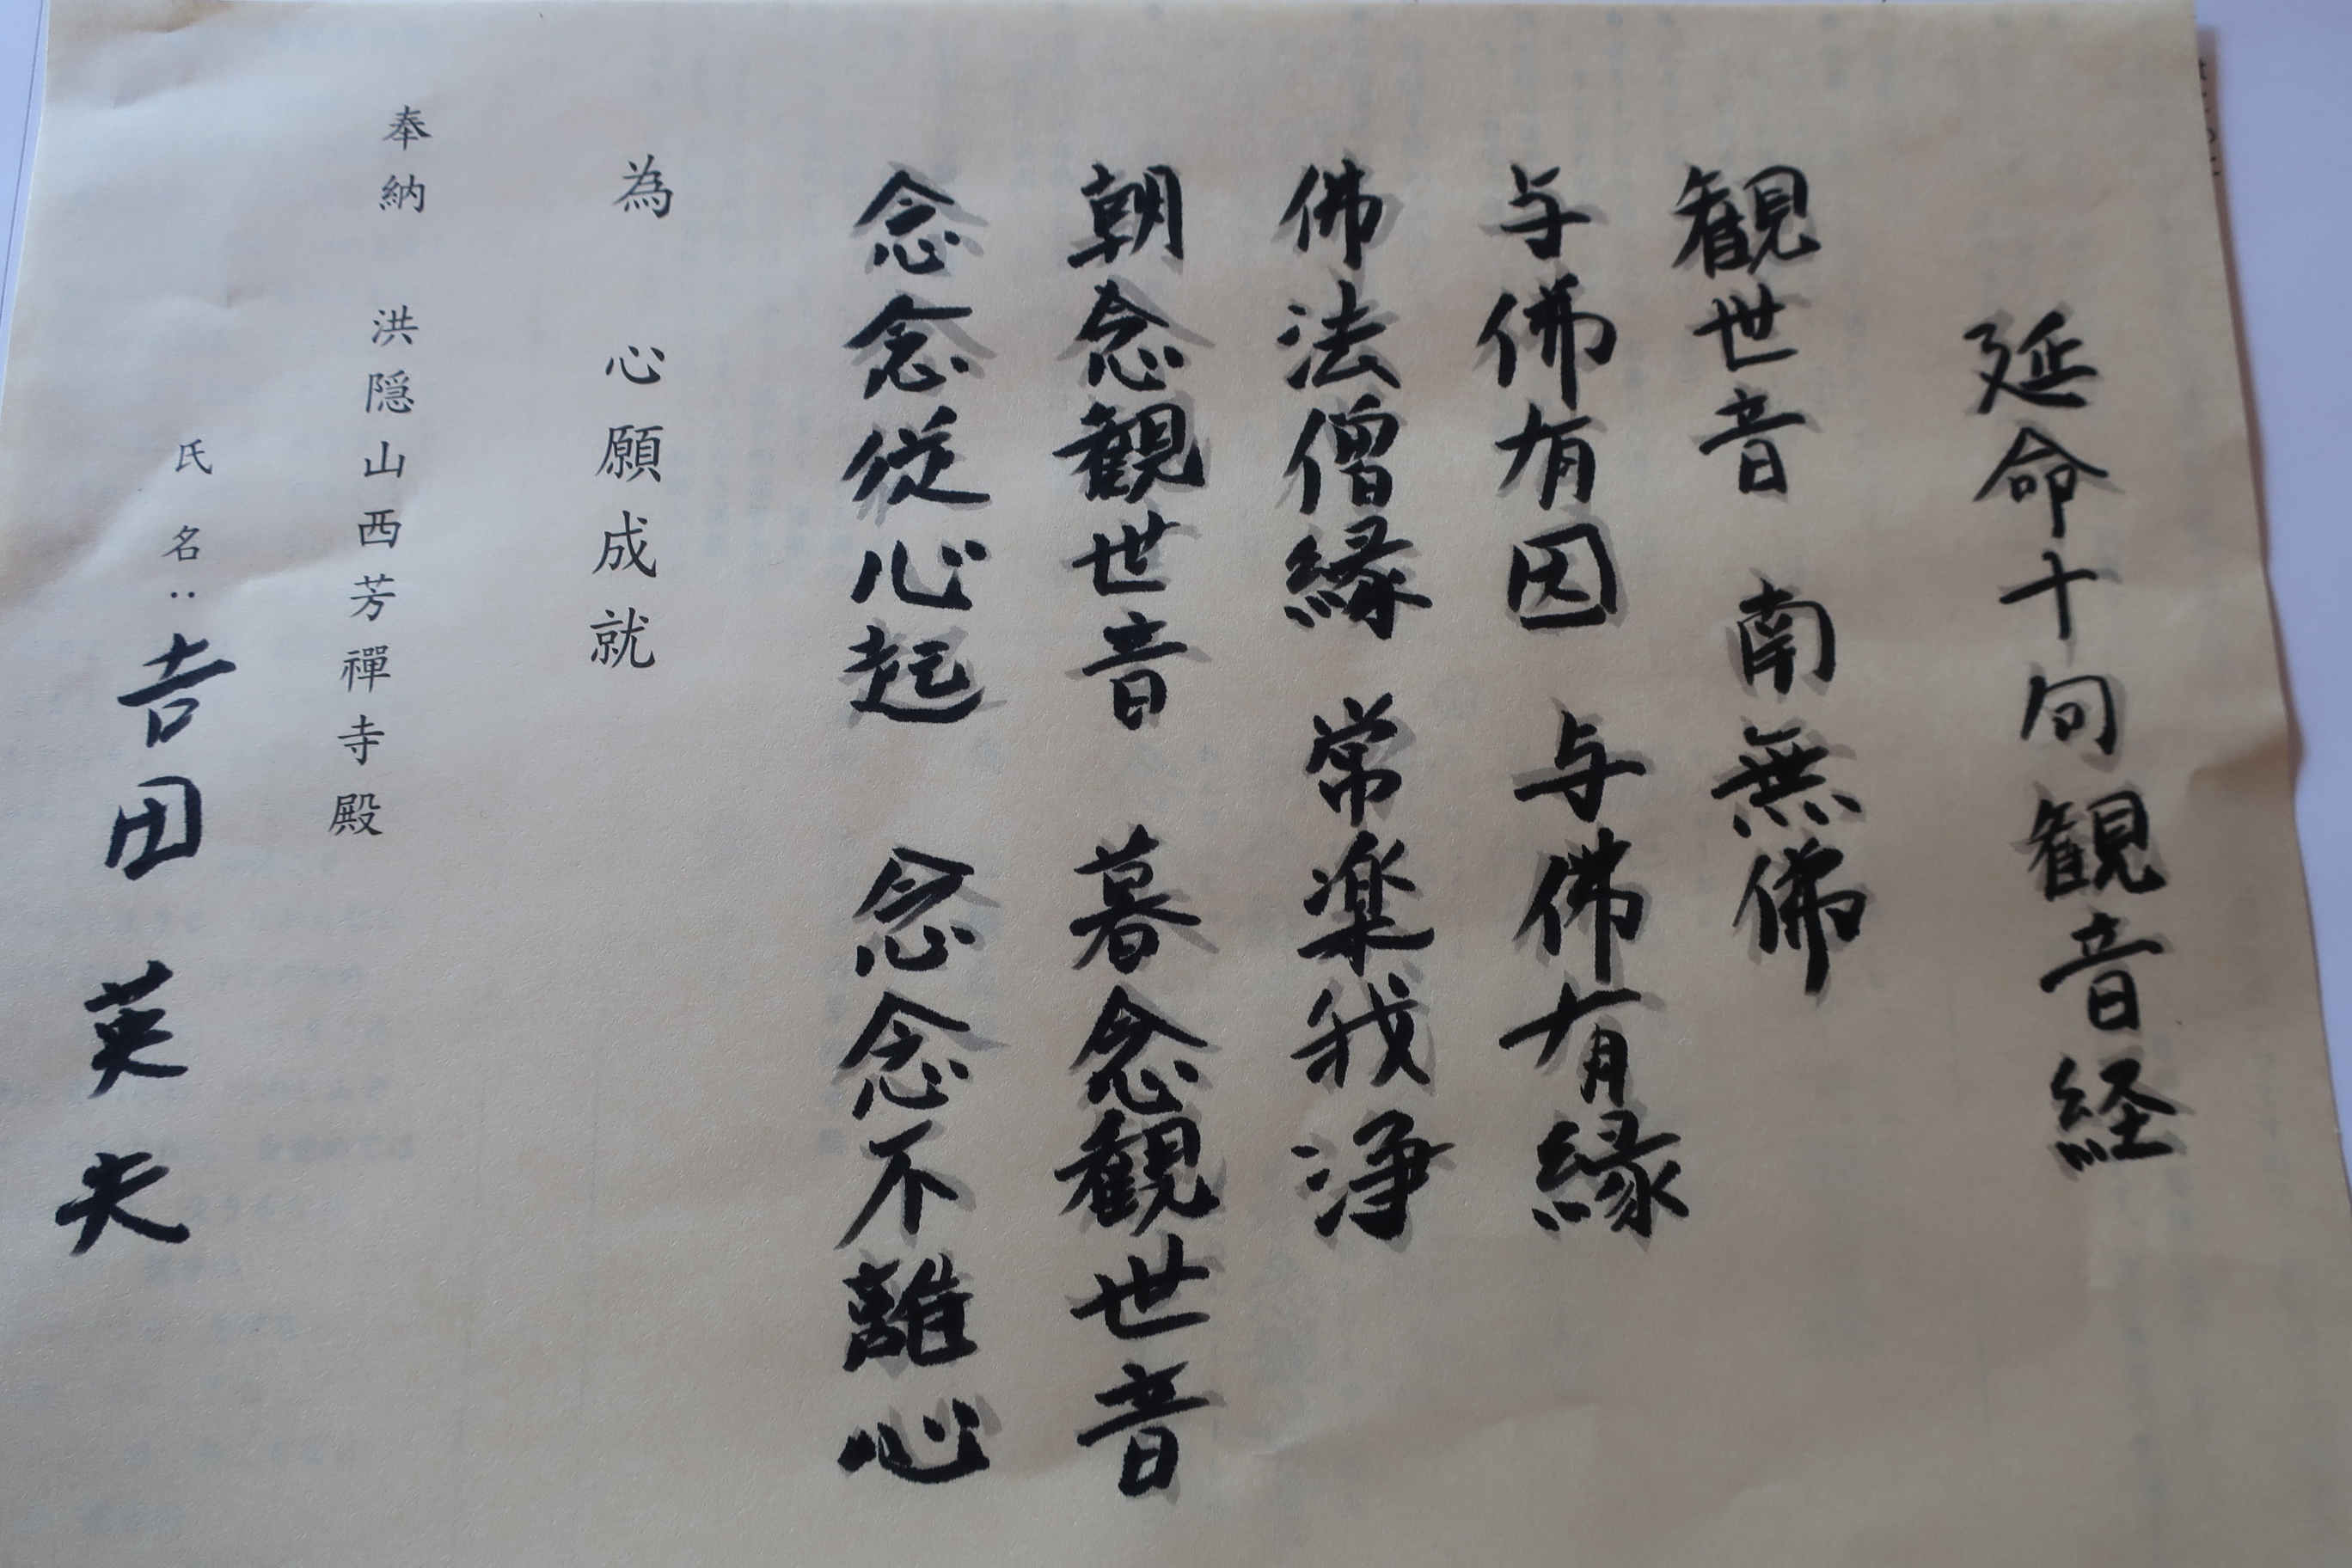 延命十句観音経
観世音　南無佛
与佛有因　与佛有縁
佛法僧縁　常楽我浄
朝念観世音　暮念観世音
念念従心起　念念不離心
為　心願成就
奉納　洪隠山西芳禪寺殿
氏名：吉田　英夫